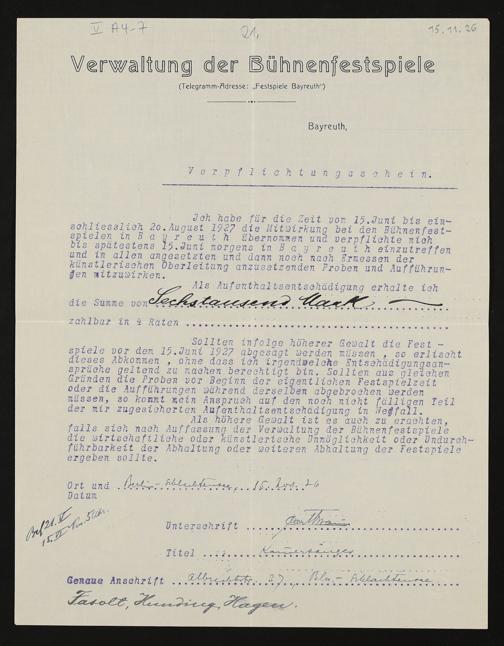 V A4-7
21.
15.11.26
Verwaltung der Bühnenfestspiele
(Telegramm-Adresse: „Festspiele Bayreuth")
Bayreuth,
Verpflichtungsschein.
Ich habe für die Zeit vom 15.Juni bis ein-
schliesslich 20.August 1927 die Mitwirkung bei den Bühnenfest-
spielen in Bayreuth übernommen und verpflichte mich
bis spätestens 15.Juni morgens in Bayreuth einzutreffen
und in allen angesetzten und dann noch nach Ermessen der
künstlerischen Oberleitung anzusetzenden Proben und Aufführun-
gen mitzuwirken.
Als Aufenthaltsentschädigung erhalte ich
die Summe von Sechstausend Mark
zahlbar in 4 Raten
Sollten infolge höherer Gewalt die Fest -
spiele vor dem 15.Juni 1927 abgesagt werden müssen , so erlischt
dieses Abkommen , ohne dass ich irgendwelche Entschädigungsan-
sprüche geltend zu machen berechtigt bin. Sollten aus gleichen
Gründen die Proben vor Beginn der eigentlichen Festspielzeit
oder die Aufführungen während derselben abgebrochen werden
müssen, so kommt mein Anspruch auf den noch nicht fälligen Teil
der mir zugesicherten Aufenthaltsentschädigung in Wegfall.
Als höhere Gewalt ist es auch zu erachten,
falls sich nach Auffassung der Verwaltung der Bühnenfestspiele
die wirtschaftliche oder künstlerische Unmöglichkeit oder Undurch-
führbarkeit der Abhaltung oder weiteren Abhaltung der Festspiele
ergeben sollte.
Ort und Berlin-Schlachtensee, 15. Nov. 26
Datum
Unterschrift
Titel Kammersänger
Genaue Anschrift Albrechtstr. 27, Bln-Schlachtensee
Fasolt, Hunding, Hagen.